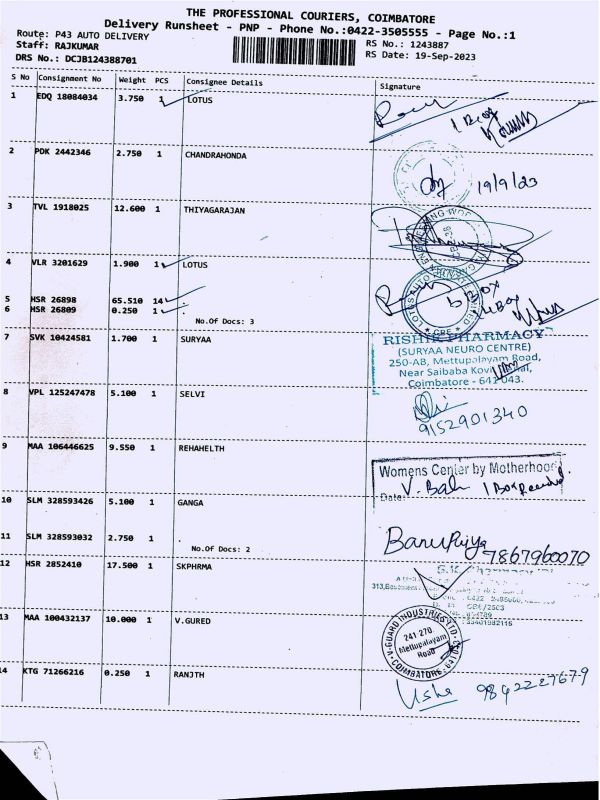 THE PROFESSIONAL COURIERS, COIMBATORE
Delivery Runsheet - PNP - Phone No.:0422-3505555 - Page No.:1
Route: P43 AUTO DELIVERY
Staff: RAJKUMAR
DRS No.: DCJB124388701
RS No.: 1243887
RS Date: 19-Sep-2023
S No Consignment No Weight PCS Consignee Details Signature
1 EDQ 18084034 3.750 1 LOTUS
1 Box
2 PDK 2442346 2.750 1 CHANDRAHONDA
19/9/23
3 TVL 1918025 12.600 1 THIYAGARAJAN
4 VLR 3201629 1.900 1 LOTUS
5 HSR 26898 65.510 14
6 HSR 26809 0.250 1
No.Of Docs: 3
7 SVK 10424581 1.700 1 SURYAA
RISHIK PHARMACY
(SURYAA NEURO CENTRE)
250-AB, Mettupalayam Road,
Near Saibaba
Coimbatore - 641 043.
8 VPL 125247478 5.100 1 SELVI
9152901340
9 MAA 106446625 9.550 1 REHAHELTH
Womens Center by Motherhood
V. Bala 1 Box Received
Date:
10 SLM 328593426 5.100 1 GANGA
11 SLM 328593032 2.750 1 .
No.Of Docs: 2
7867960070
12 HSR 2852410 17.500 1 SKPHRMA
13 MAA 100432137 10.000 1 V.GURED
V-GUARD INDUSTRIES LTD
241 270
Mettupalayam
Road
COIMBATORE
14 KTG 71266216 0.250 1 RANJTH
Usha 9842227679